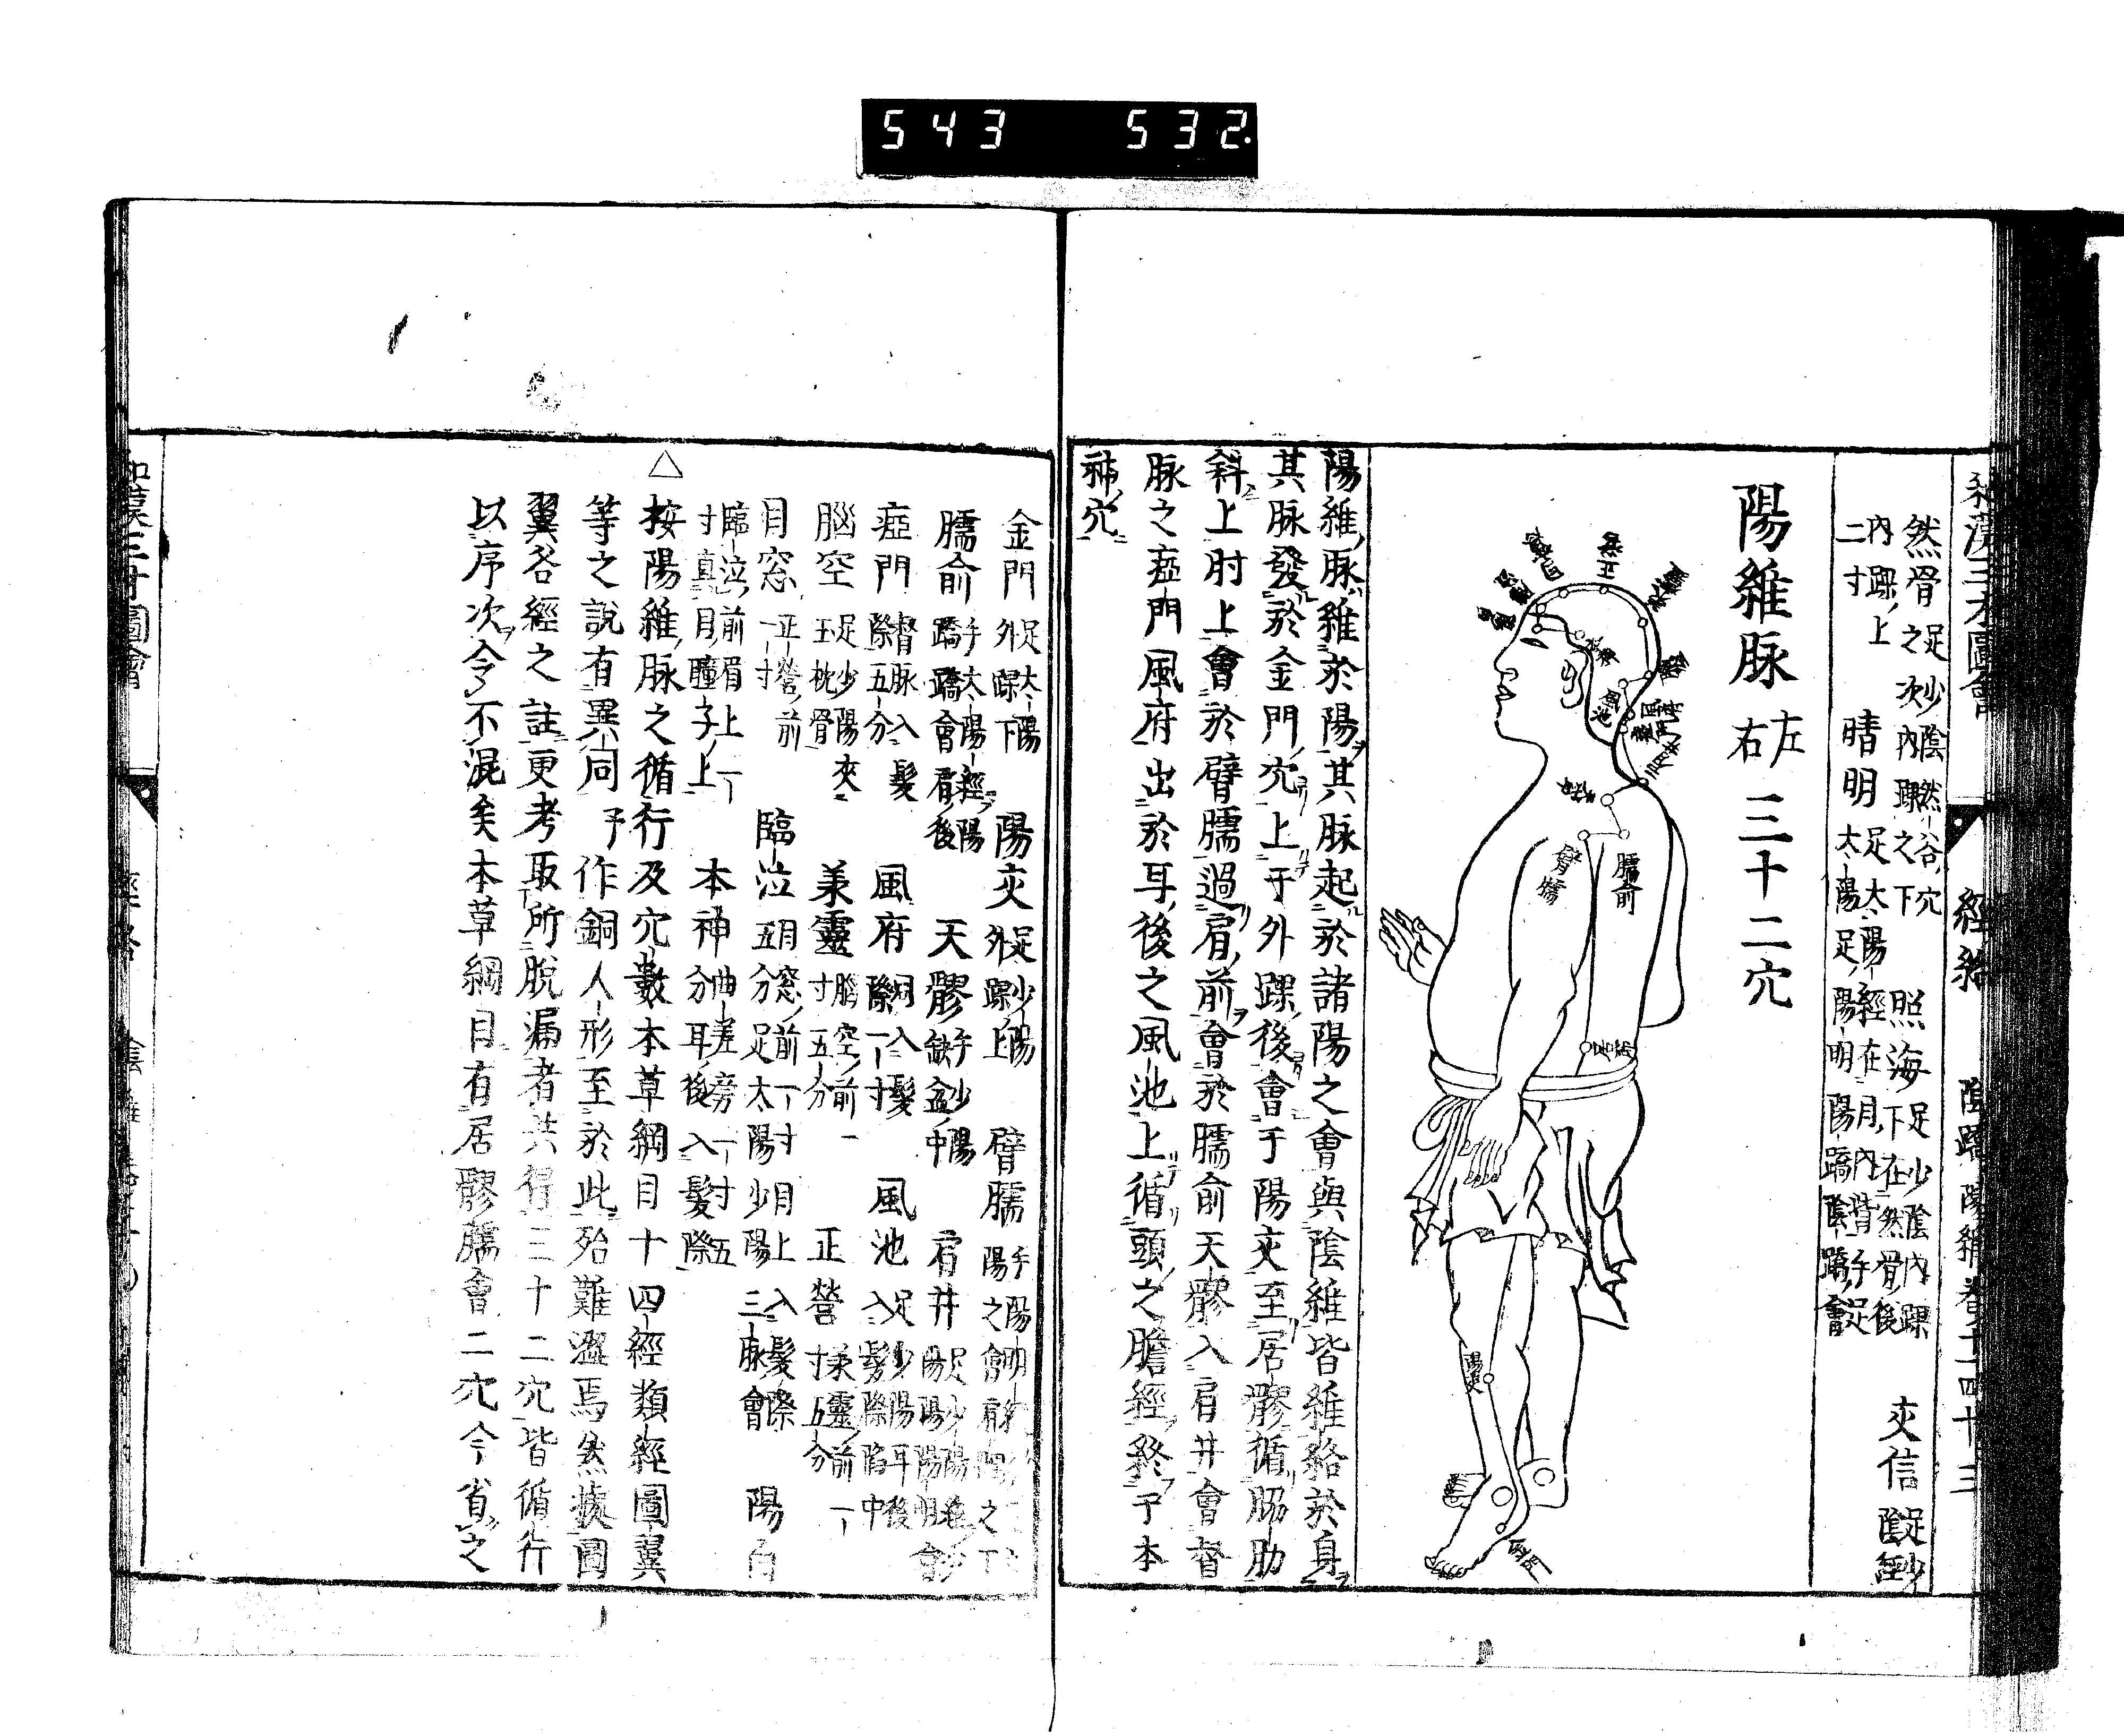 543 532
和漢三才圖會 經絡 陰蹻 陽維 卷十一 四十三
然骨 足少陰然谷穴之次內踝之下
照海 足少陰內踝下在然骨後
交信 足少陰經
內踝上二寸
睛明 足太陽經在目內眥手足太陽足陽明陽蹻陰蹻會
陽維脉 左右 三十二穴
本神
風池
臂臑
臑俞
居髎
陽交
金門
陽維脉維於陽其脉起於諸陽之會與陰維皆維絡於身
其脉發於金門穴上于外踝後會于陽交至居髎循脇肋
斜上肘上會於臂臑過肩前會於臑俞天髎入肩井會督
脉之瘂門風府出於耳後之風池上循頭之膽經終于本
神穴
金門 足太陽外踝下
陽交 足少陽外踝上
臂臑 手陽明
臑俞 手太陽經陽蹻蹻會肩後
天髎 手少陽缺盆中
肩井 足少陽
瘂門 督脉入髮際五分
風府 同入髮際一寸
風池 足少陽耳後入髮際陷中
腦空 足少陽夾玉枕骨
承靈 腦空前一寸五分
正營 承靈前一寸五分
目窓 正營前一寸
臨泣 目窓前一寸目上入髮際五分足太陽少陽三脉會
陽白
臨泣前眉上一寸直目瞳子上
本神 曲差旁一寸五分耳後入髮際
△
按陽維脉之循行及穴數本草綱目十四經類經圖翼
等之說有異同予作銅人形至於此殆難澀焉然據圖
翼各經之註更考取所脫漏者共得三十二穴皆循行
以序次令不混矣本草綱目有居髎臑會二穴今省之
和漢三才圖會